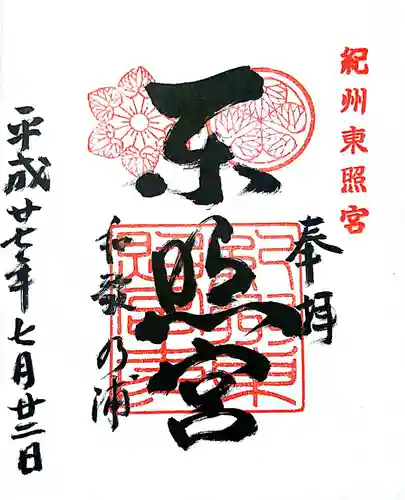 紀州東照宮
奉拝
東照宮
和歌の浦
平成廿七年七月廿二日